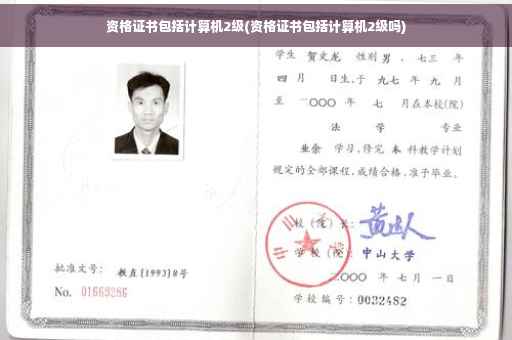 资格证书包括计算机2级(资格证书包括计算机2级吗)
学生 贺文龙 性别 男 、七三 年
四 月 日生,于 九七 年 九 月
至 二〇〇〇 年 七 月在本校(院)
法 学 专业
业余 学习,修完 本 科教学计划
规定的全部课程,成绩合格,准予毕业。
校(院)长:
学校(院): 中山大学
二〇〇〇 年 七 月 一 日
学校编号: 0032482
批准文号: 教直[1993]8号
No. 01669286